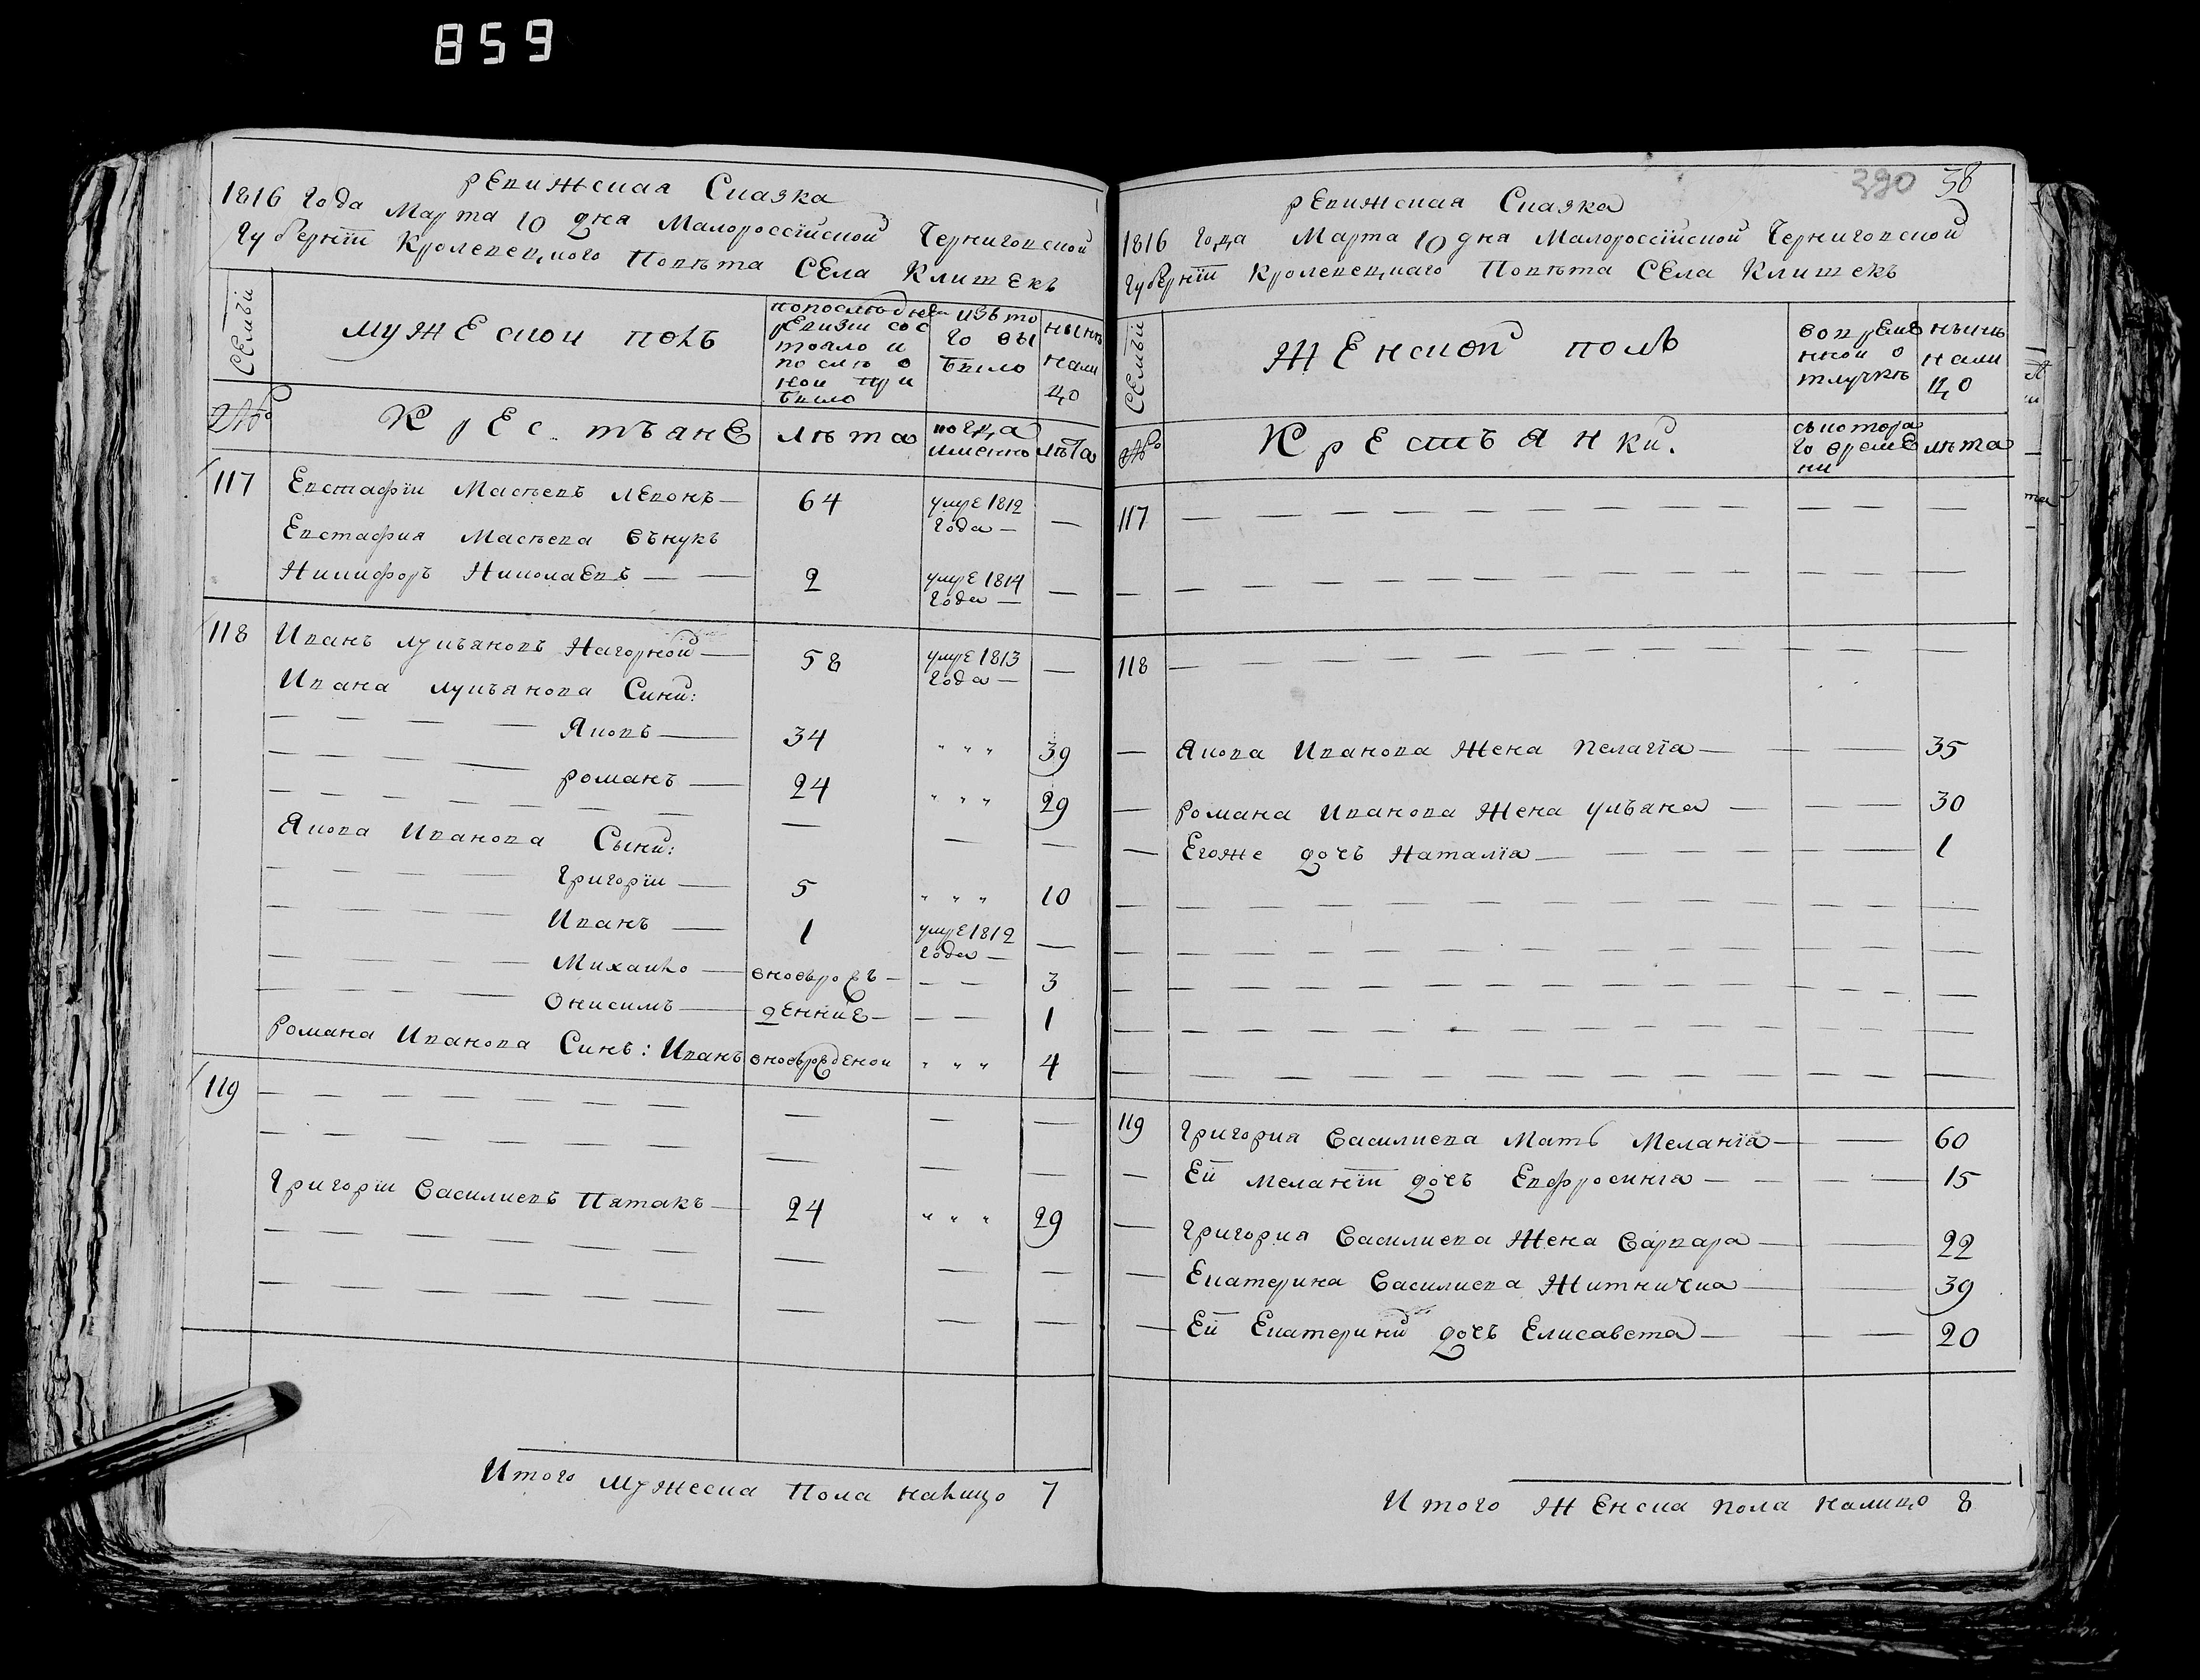 859
Ревижская Сказка
1816 Года Марта 10 дня Малороссійской Черниговской
Губерніи Кролевецкого Повѣта Села Клишекъ
Семьи
мужеской полъ
попоследней ревизіи состояло и послѣ оной прибыло
изъ того выбыло
нынѣ налицо
№
Крестъяне
лѣта
когда именно
лѣта
117 Евстафіи Масѣевъ Левонъ — 64 умре 1812 года — —
Евстафия Масѣева внукъ
Никифоръ Николаевъ — — 2 умре 1814 года — —
118 Иванъ Лукъяновъ Нагорной — 58 умре 1813 года — —
Ивана Лукъянова Сини:
Яковъ — 34 " " " 39
Романъ — 24 " " " 29
Якова Иванова Сыни: — — —
Григоріи — 5 " " " 10
Иванъ — 1 умре 1812 года — —
Михаило — вновърож — — — 3
Онисимъ — денние — — — 1
Романа Иванова Синъ: Иванъ вновърожденои " " " 4
119
Григоріи Василиевъ Пятакъ — 24 " " " 29
Итого мужеска Пола налицо 7
390 38
Ревижская Сказка
1816 Года Марта 10 дня Малороссійской Черниговской
Губерніи Кролевецкаго Повѣта Села Клишекъ
Семьи
Женской полъ
вовременной отлучкѣ
нынѣ налицо
№
Крестъянки.
съкотораго времени
лѣта
117
118
— Якова Иванова Жена Пелагіа — — — 35
— Романа Иванова Жена Улъяна — — — 30
— Егоже дочъ Наталіа — — — 1
119 Григория Василиева Мать Меланіа — — 60
— Ей Меланіи дочъ Евфросиніа — — — 15
— Григория Василиева Жена Варвара — — 22
— Екатерина Василиева Житничка — — 39
— Ей Екатерини дочъ Елисавета — — — 20
Итого Женска пола налицо 8